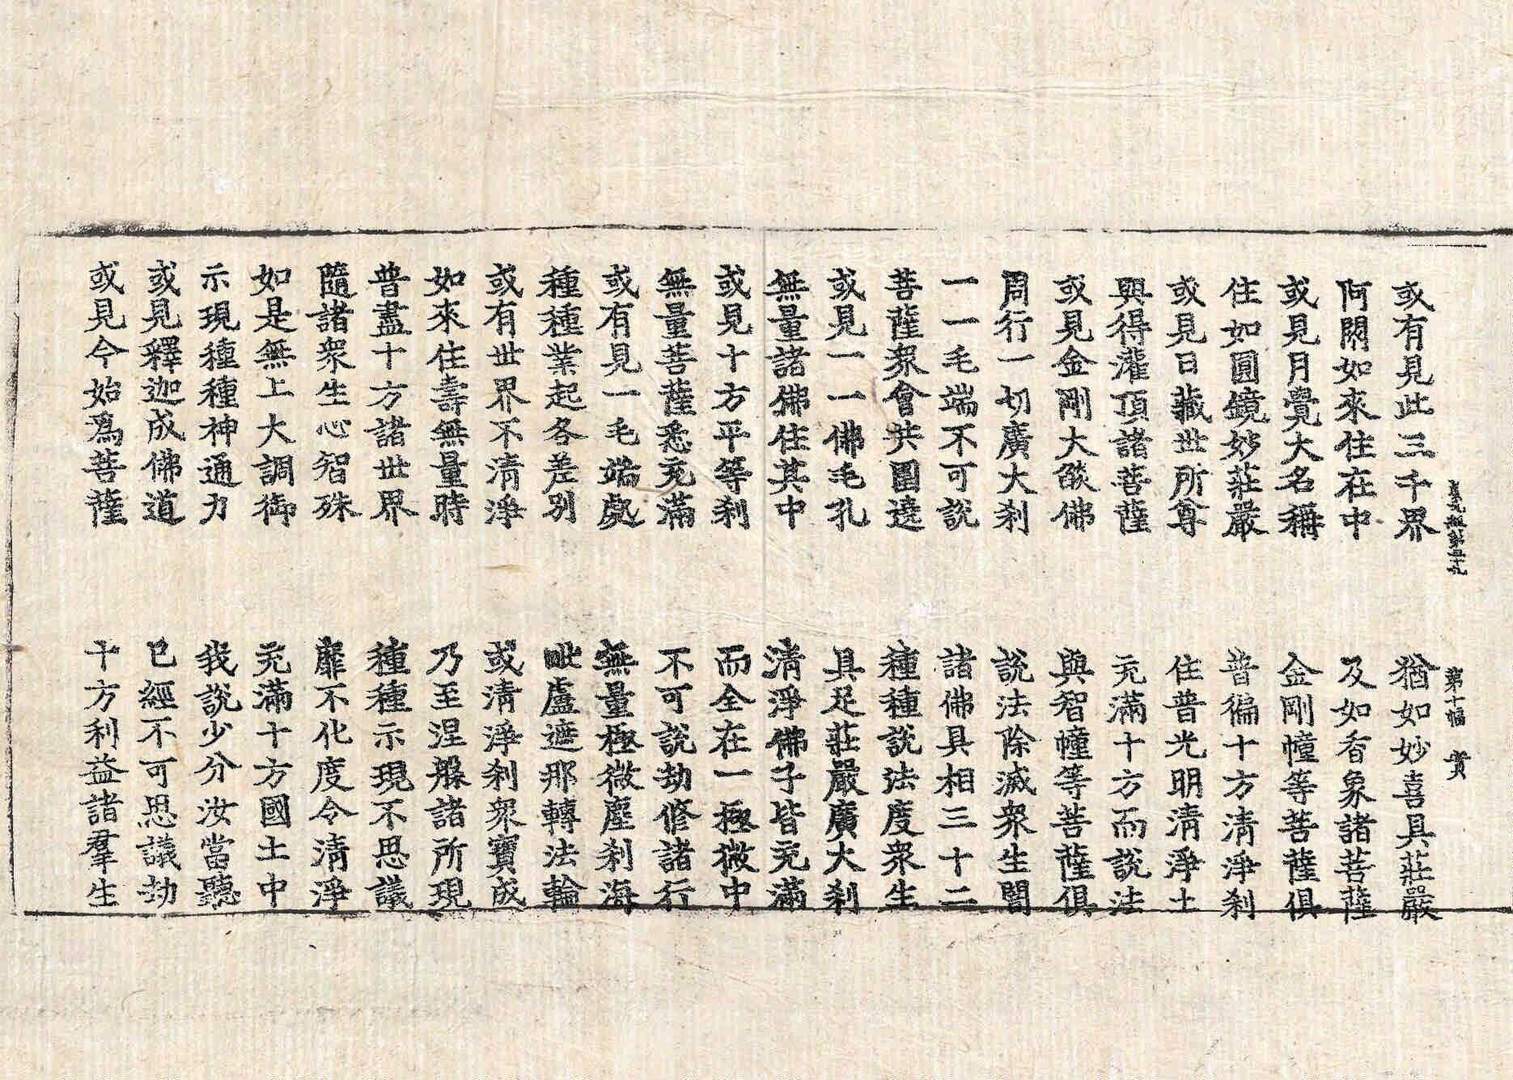 或有見此三千界　猶如妙喜具莊嚴
阿閦如來住在中　及如香象諸菩薩
或見月覺大名稱　金剛幢等菩薩俱
住如圓鏡妙莊嚴　普徧十方清淨刹
或見日藏世所尊　住普光明清淨土
與得灌頂諸菩薩　充滿十方而說法
或見金剛大燄佛　與智幢等菩薩俱
周行一切廣大刹　說法除滅衆生瞖
一一毛端不可說　諸佛具相三十二
菩薩衆會共圍遶　種種說法度衆生
或見一一佛毛孔　具足莊嚴廣大刹
無量諸佛住其中　清淨佛子皆充滿
或見十方平等刹　而全在一極微中
無量菩薩悉充滿　不可說劫修諸行
或有見一毛端處　無量極微塵刹海
種種業起各差別　毗盧遮那轉法輪
或有世界不清淨　或清淨刹衆寶成
如來住壽無量時　乃至涅槃諸所現
普盡十方諸世界　種種示現不思議
隨諸衆生心智殊　靡不化度令清淨
如是無上大調御　充滿十方國土中
示現種種神通力　我說少分汝當聽
或見釋迦成佛道　已經不可思議劫
或見今始爲菩薩　十方利益諸羣生